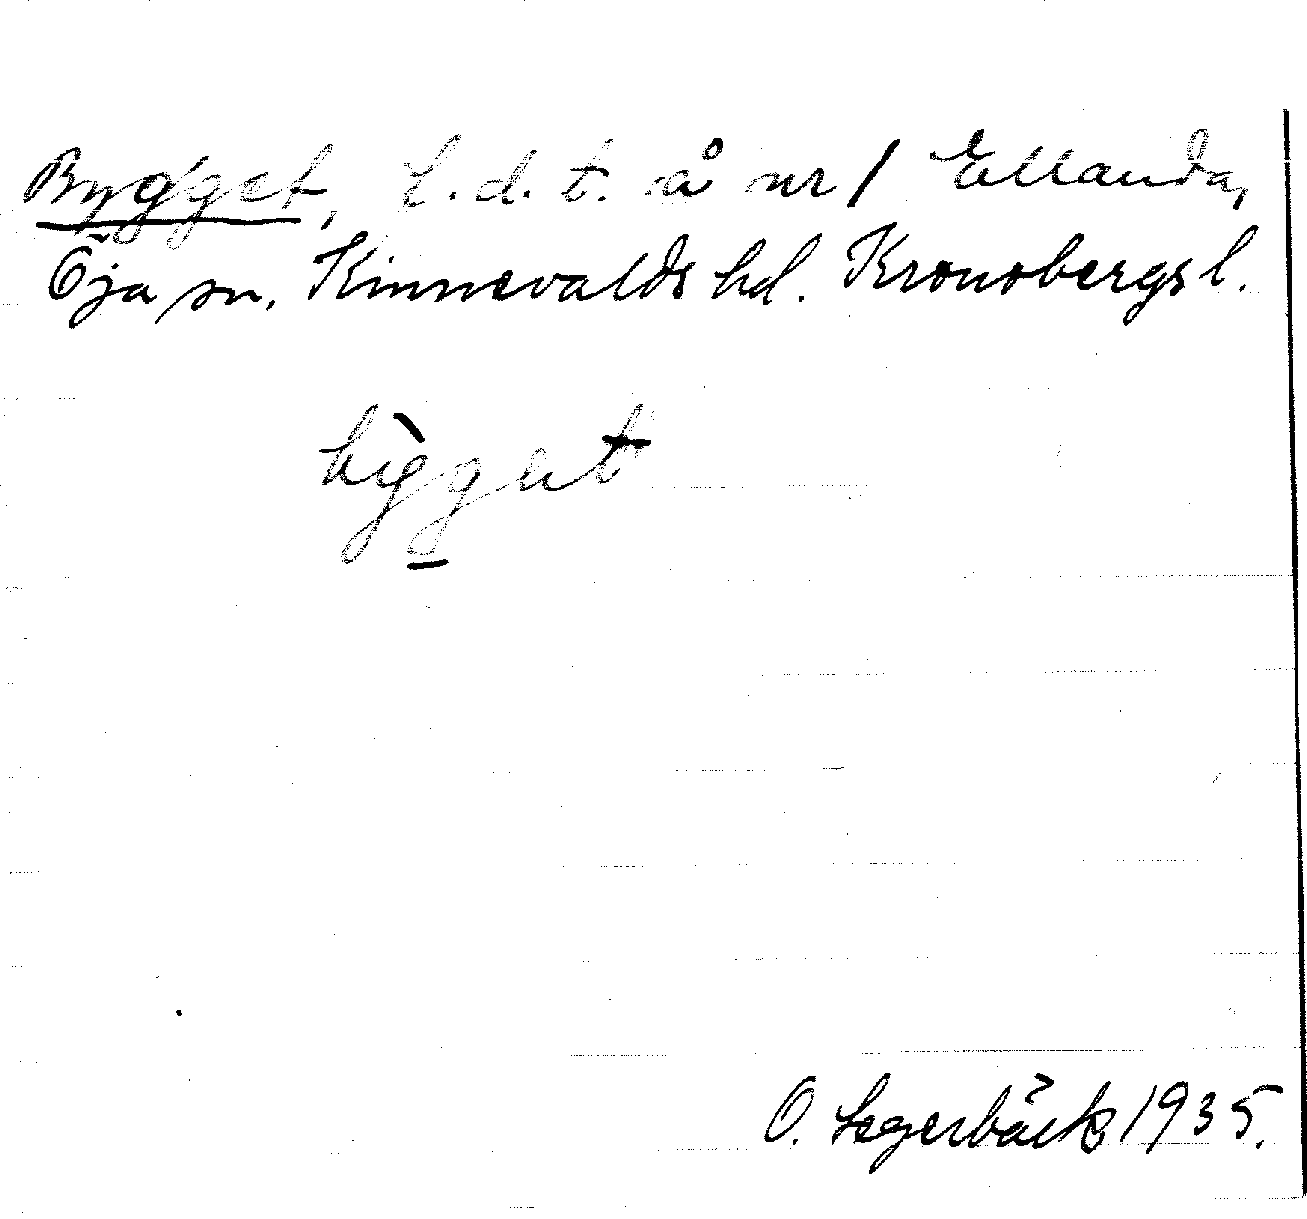 Bygget, f.d.t. å nr 1 Ellanda,
Öja sn. Kinnevalds hd. Kronobergs l.
bỳgget
O. Segerbäck 1935.